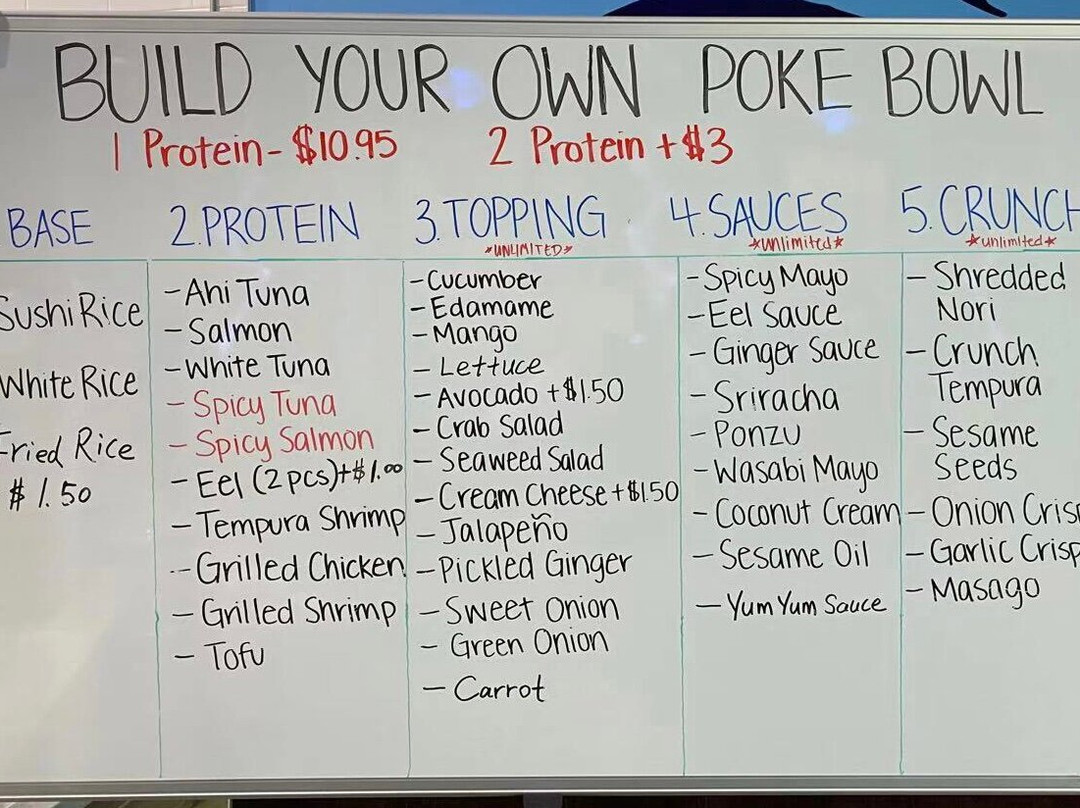 BUILD YOUR OWN POKE BOWL
1 Protein - $10.95 2 Protein + $3
BASE
Sushi Rice
White Rice
Fried Rice
$1.50
2. PROTEIN
- Ahi Tuna
- Salmon
- White Tuna
- Spicy Tuna
- Spicy Salmon
- Eel (2 pcs)+$1.00
- Tempura Shrimp
- Grilled Chicken
- Grilled Shrimp
- Tofu
3. TOPPING
*UNLIMITED*
- Cucumber
- Edamame
- Mango
- Lettuce
- Avocado +$1.50
- Crab Salad
- Seaweed Salad
- Cream Cheese +$1.50
- Jalapeño
- Pickled Ginger
- Sweet Onion
- Green Onion
- Carrot
4. SAUCES
*unlimited*
- Spicy Mayo
- Eel Sauce
- Ginger Sauce
- Sriracha
- Ponzu
- Wasabi Mayo
- Coconut Cream
- Sesame Oil
- Yum Yum Sauce
5. CRUNCH
*unlimited*
- Shredded
Nori
- Crunch
Tempura
- Sesame
Seeds
- Onion Crisp
- Garlic Crisp
- Masago